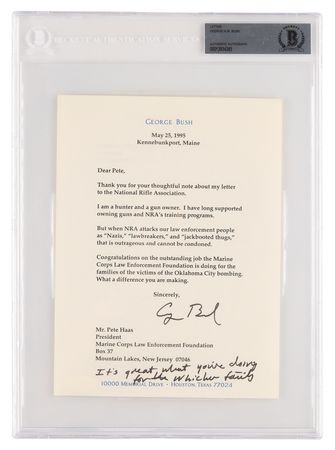 BECKETT AUTHENTICATION SERVICES
LETTER
GEORGE H.W. BUSH
AUTHENTIC AUTOGRAPH
BECKETT
GEORGE BUSH
May 25, 1995
Kennebunkport, Maine
Dear Pete,
Thank you for your thoughtful note about my letter
to the National Rifle Association.
I am a hunter and a gun owner. I have long supported
owning guns and NRA's training programs.
But when NRA attacks our law enforcement people
as "Nazis," "lawbreakers," and "jackbooted thugs,"
that is outrageous and cannot be condoned.
Congratulations on the outstanding job the Marine
Corps Law Enforcement Foundation is doing for the
families of the victims of the Oklahoma City bombing.
What a difference you are making.
Sincerely,
G Bush
Mr. Pete Haas
President
Marine Corps Law Enforcement Foundation
Box 37
Mountain Lakes, New Jersey 07046
It's great what you're doing
for the Whicher family
10000 MEMORIAL DRIVE · HOUSTON, TEXAS 77024